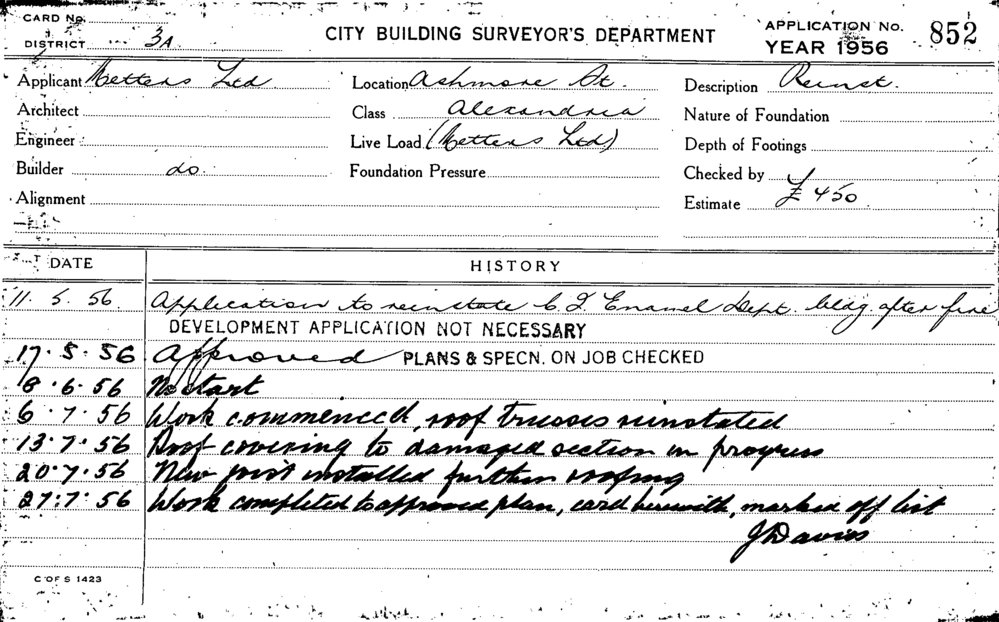 CARD No.
DISTRICT 3A
CITY BUILDING SURVEYOR'S DEPARTMENT
APPLICATION No. 852
YEAR 1956
Applicant Metters Ltd
Location Ashmore St.
Description Reinst.
Architect
Class Alexandria
Nature of Foundation
Engineer
Live Load (Metters Ltd)
Depth of Footings
Builder do.
Foundation Pressure
Checked by
Alignment
Estimate £450
DATE
HISTORY
11.5.56. Application to reinstate C.I. Enamel Dept. bldg. after fire
DEVELOPMENT APPLICATION NOT NECESSARY
17.5.56 Approved PLANS & SPECN. ON JOB CHECKED
8.6.56 No start
6.7.56 Work commenced, roof trusses reinstated
13.7.56 Roof covering to damaged section in progress
20.7.56 New installed further roofing
27.7.56 Work completed to approved plan, card herewith, marked off list
J Davies
C OF S 1423